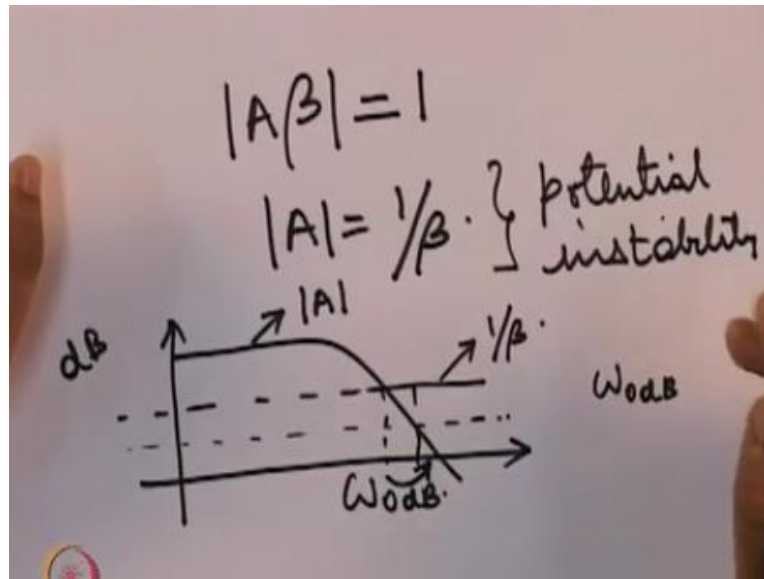 |Aβ| = 1
|A| = 1/β. } potential instability
|A|
dB
1/β.
ω0dB
ω0dB.